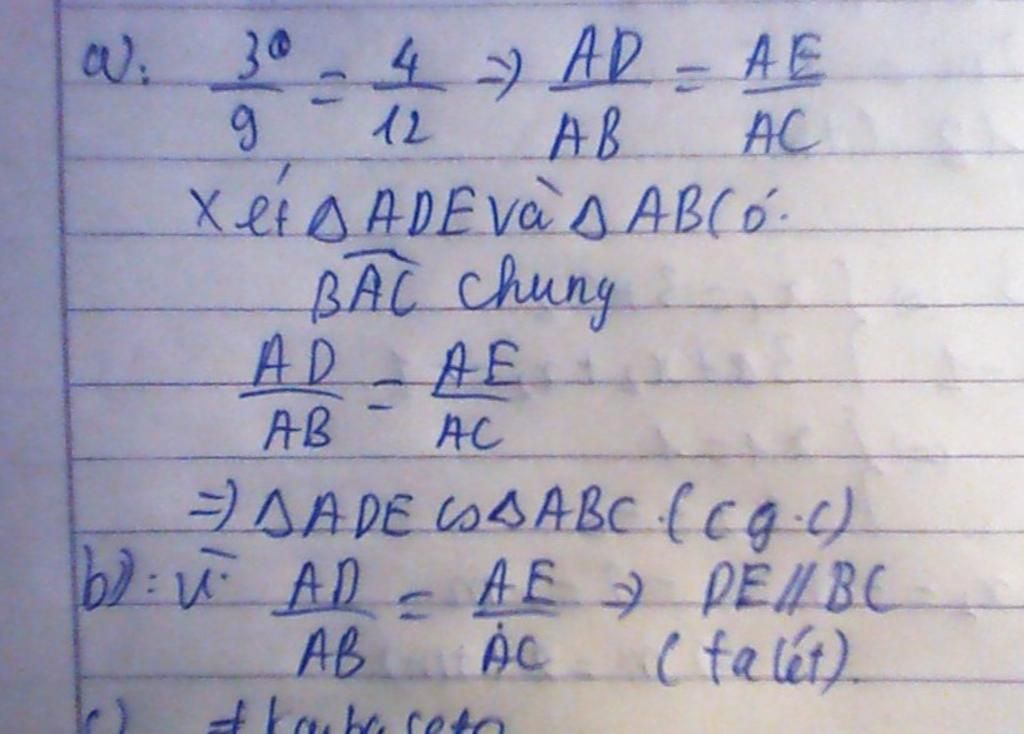 a): 3/9 = 4/12 => AD/AB = AE/AC
Xét Δ ADE và Δ ABC ó.
BAC chung
AD/AB = AE/AC
=> Δ ADE ∽ Δ ABC (c g.c)
b): vì AD/AB = AE/AC => DE//BC
(ta lét).
c)